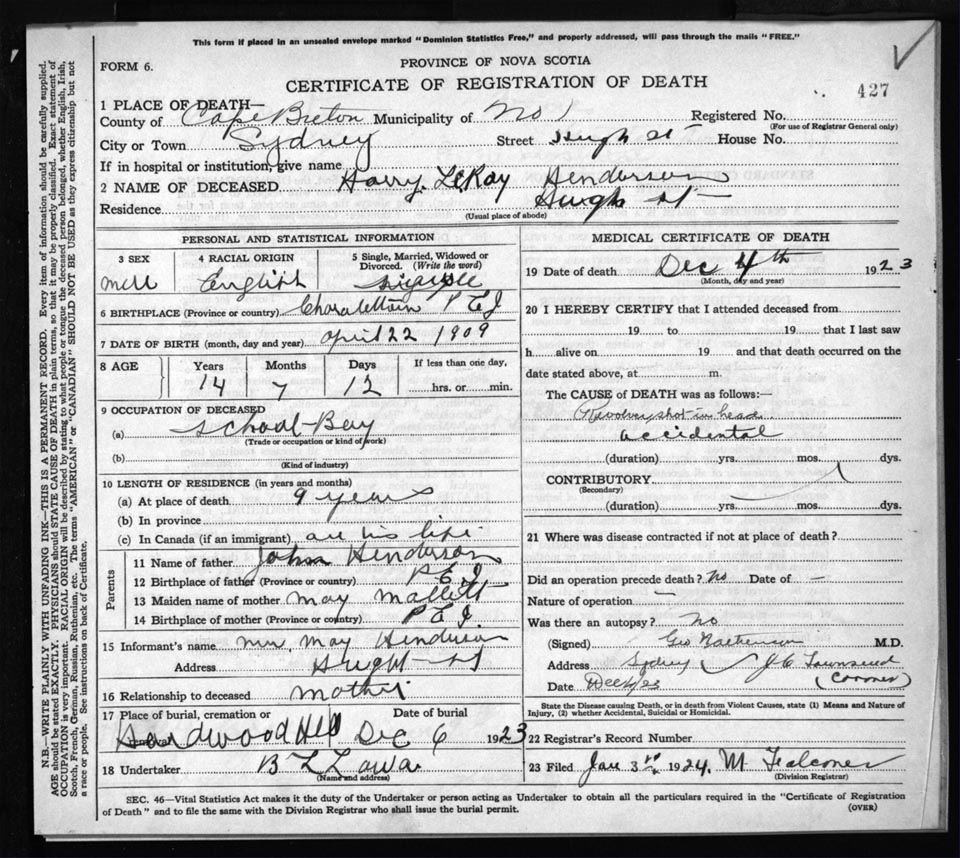 This form if placed in an unsealed envelope marked "Dominion Statistics Free," and properly addressed, will pass through the mails "FREE."
FORM 6.
PROVINCE OF NOVA SCOTIA
CERTIFICATE OF REGISTRATION OF DEATH
427
1 PLACE OF DEATH—
County of Cape Breton Municipality of No 1 Registered No.
(For use of Registrar General only)
City or Town Sydney Street Hugh St House No.
If in hospital or institution, give name
2 NAME OF DECEASED Harry LeRoy Henderson
Residence Hugh St
(Usual place of abode)
PERSONAL AND STATISTICAL INFORMATION
3 SEX 4 RACIAL ORIGIN 5 Single, Married, Widowed or Divorced. (Write the word)
English single
6 BIRTHPLACE (Province or country) P E I
7 DATE OF BIRTH (month, day and year) april 22 1909
8 AGE Years Months Days If less than one day,
14 7 12 hrs. or min.
9 OCCUPATION OF DECEASED
(a) School-Boy
(Trade or occupation or kind of work)
(b)
(Kind of industry)
10 LENGTH OF RESIDENCE (in years and months)
(a) At place of death 9 years
(b) In province
(c) In Canada (if an immigrant) all his life
Parents
11 Name of father John Henderson
12 Birthplace of father (Province or country) P E I
13 Maiden name of mother May Mallett
14 Birthplace of mother (Province or country) P E I.
15 Informant's name Mrs May Henderson
Address St
16 Relationship to deceased mother
17 Place of burial, cremation or removal Date of burial
Hardwood Hill Dec 6 1923
18 Undertaker
(Name and address)
MEDICAL CERTIFICATE OF DEATH
19 Date of death Dec 4th 1923
(Month, day and year)
20 I HEREBY CERTIFY that I attended deceased from
19 to 19 that I last saw
h alive on 19 and that death occurred on the
date stated above, at m.
The CAUSE OF DEATH was as follows:
Revolver shot in head
accidental
(duration) yrs. mos. dys.
CONTRIBUTORY
(Secondary)
(duration) yrs. mos. dys.
21 Where was disease contracted if not at place of death?
Did an operation precede death? No Date of —
Nature of operation —
Was there an autopsy? No
(Signed) Geo M.D.
Address Sydney J C Townsend
Date (Coroner)
State the Disease causing Death, or in death from Violent Causes, state (1) Means and Nature of
Injury, (2) whether Accidental, Suicidal or Homicidal.
22 Registrar's Record Number
23 Filed Jan 3rd 1924. M Falconer
(Division Registrar)
SEC. 46—Vital Statistics Act makes it the duty of the Undertaker or person acting as Undertaker to obtain all the particulars required in the "Certificate of Registration
of Death" and to file the same with the Division Registrar who shall issue the burial permit.
(OVER)
N.B.—WRITE PLAINLY WITH UNFADING INK—THIS IS A PERMANENT RECORD. Every item of information should be carefully supplied.
AGE should be stated EXACTLY. PHYSICIANS should STATE CAUSE OF DEATH in plain terms, so that it may be properly classified. Exact statement of
OCCUPATION is very important. RACIAL ORIGIN will be described by stating to what people or tongue the deceased person belonged, whether English, Irish,
Scotch, French, German, Russian, Ruthenian, etc. The terms "AMERICAN" or "CANADIAN" SHOULD NOT BE USED as they express citizenship but not
a race or people. See instructions on back of Certificate.